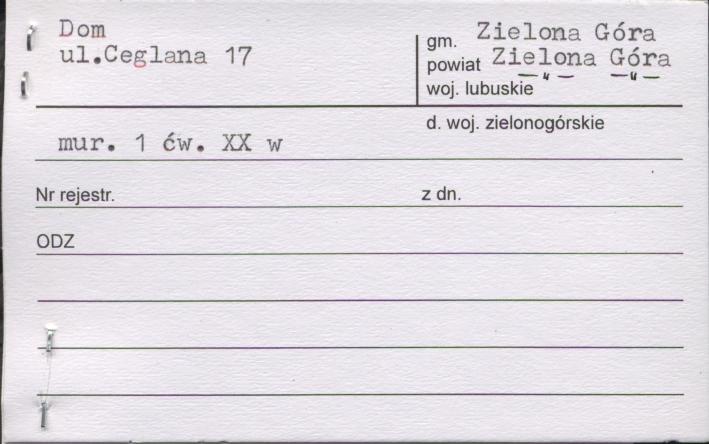 Dom
ul.Ceglana 17
gm. Zielona Góra
powiat Zielona Góra
— " — — " —
woj. lubuskie
d. woj. zielonogórskie
mur. 1 ćw. XX w
Nr rejestr. z dn.
ODZ